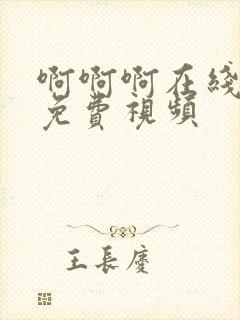 啊啊啊在綫
免費視頻
王長慶